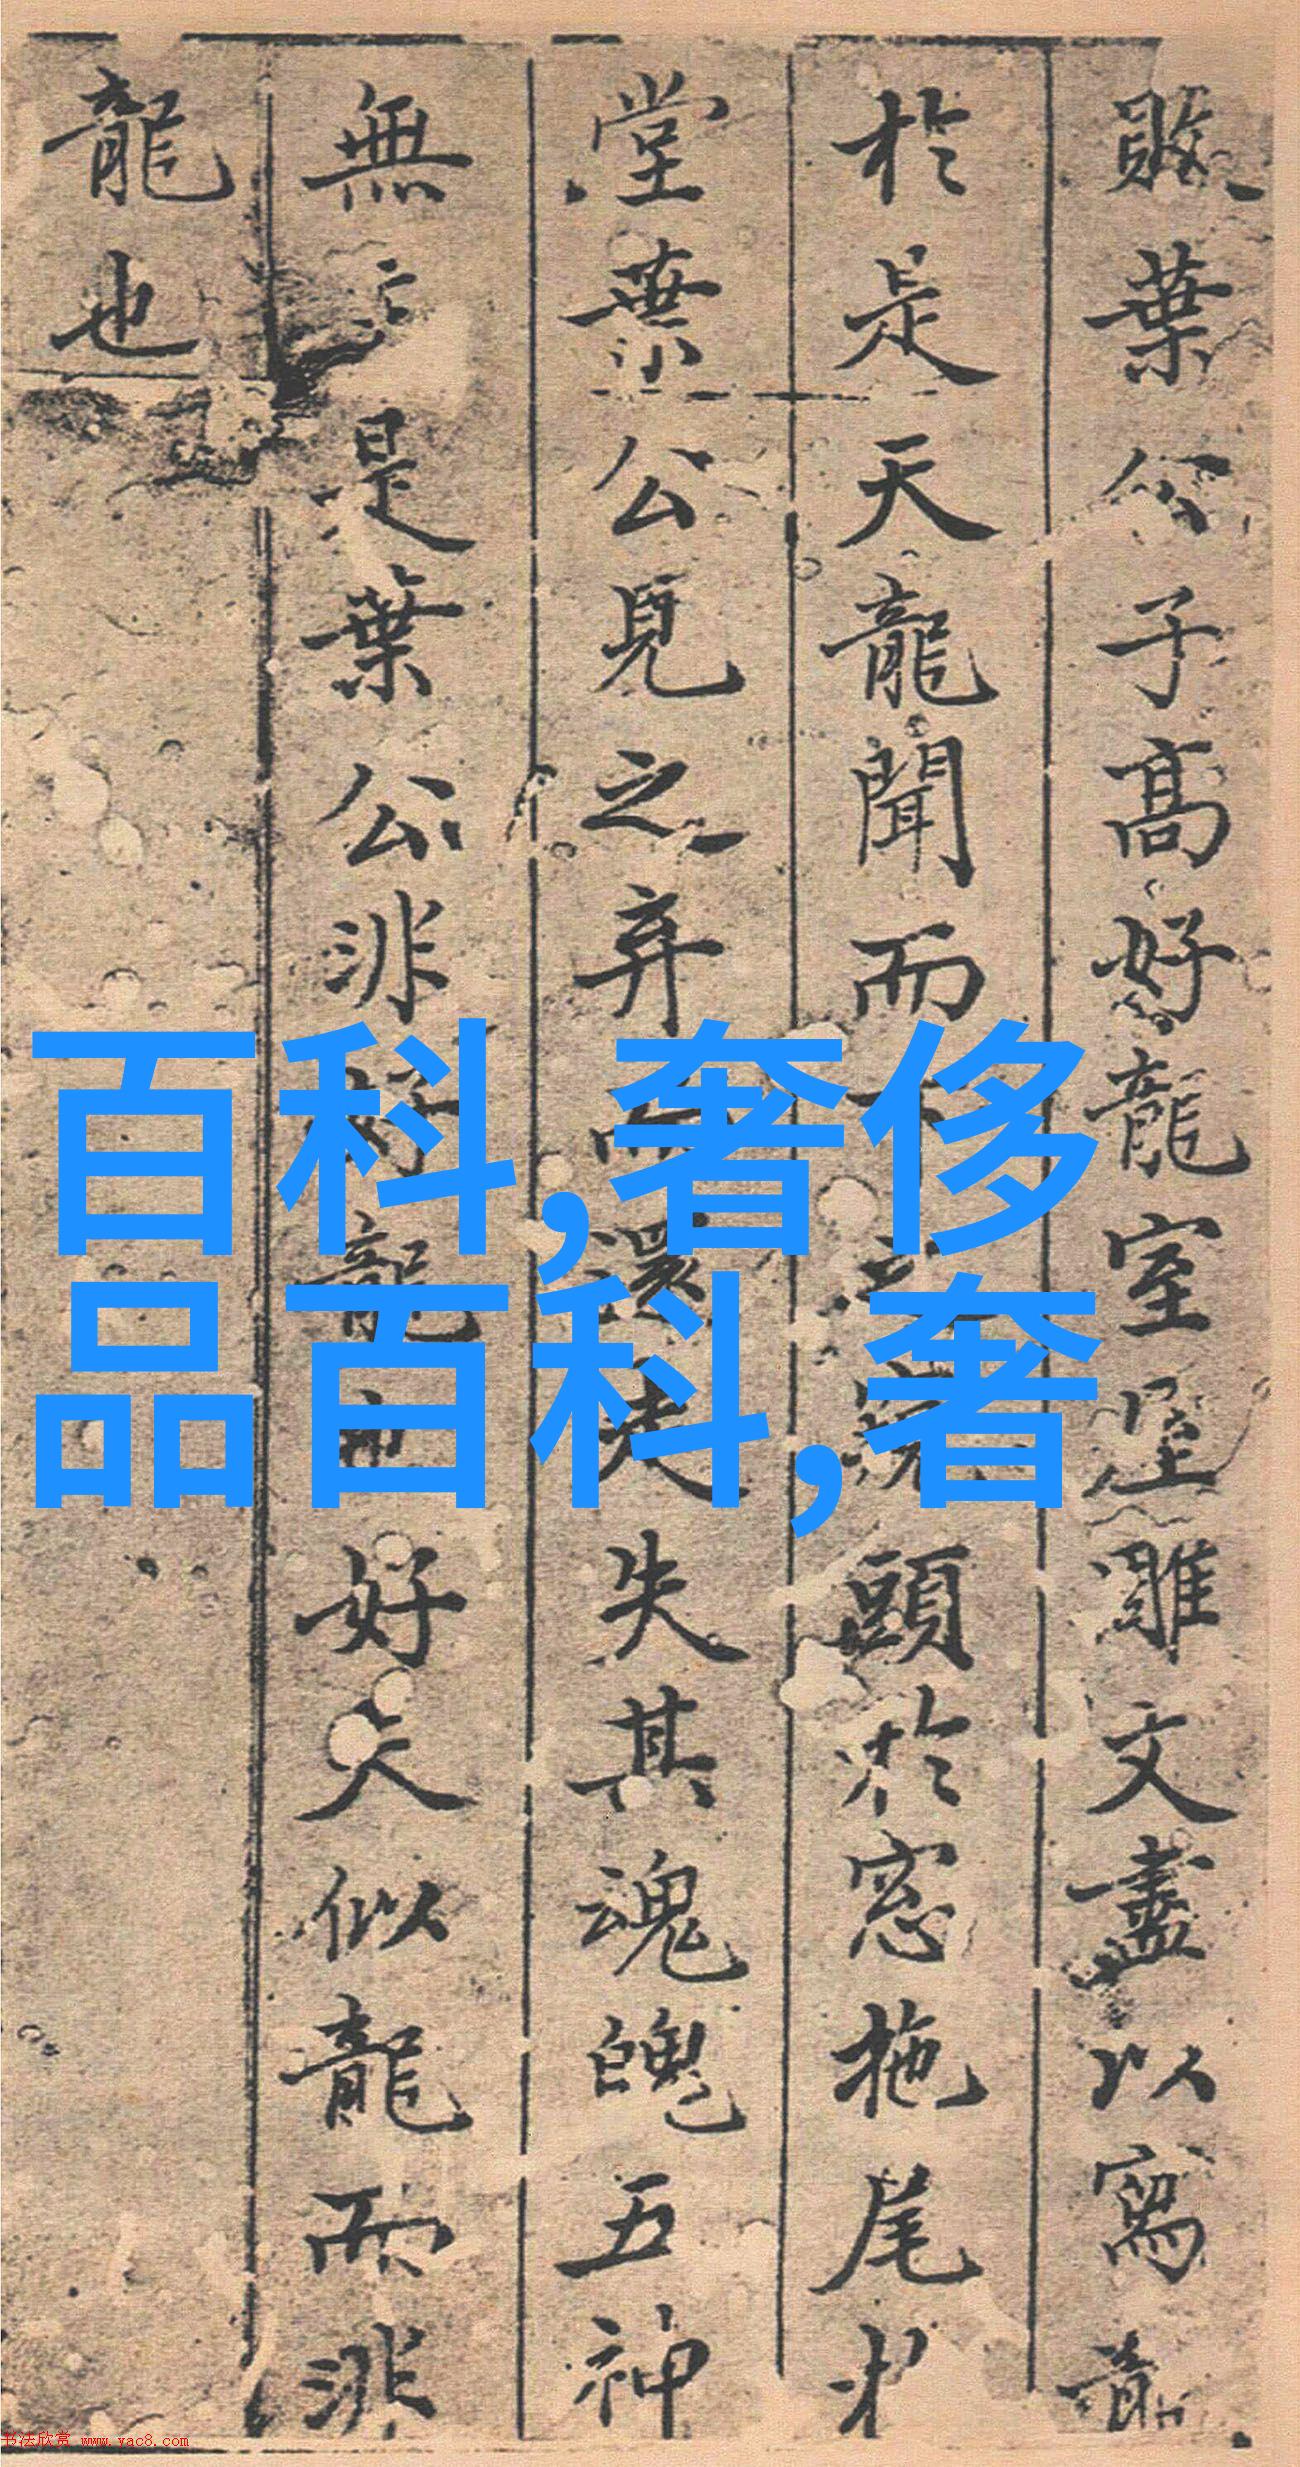 敗葉公子高好龍室屋雕文盡以寫龍
於是天龍聞而下之窺頭於窓拖尾於
堂葉公見之弃而還走失其魂魄五神
無主是葉公非好龍也好夫似龍而非
龍也
百科,奢侈
品百科,奢
书法欣赏 www.yac8.com